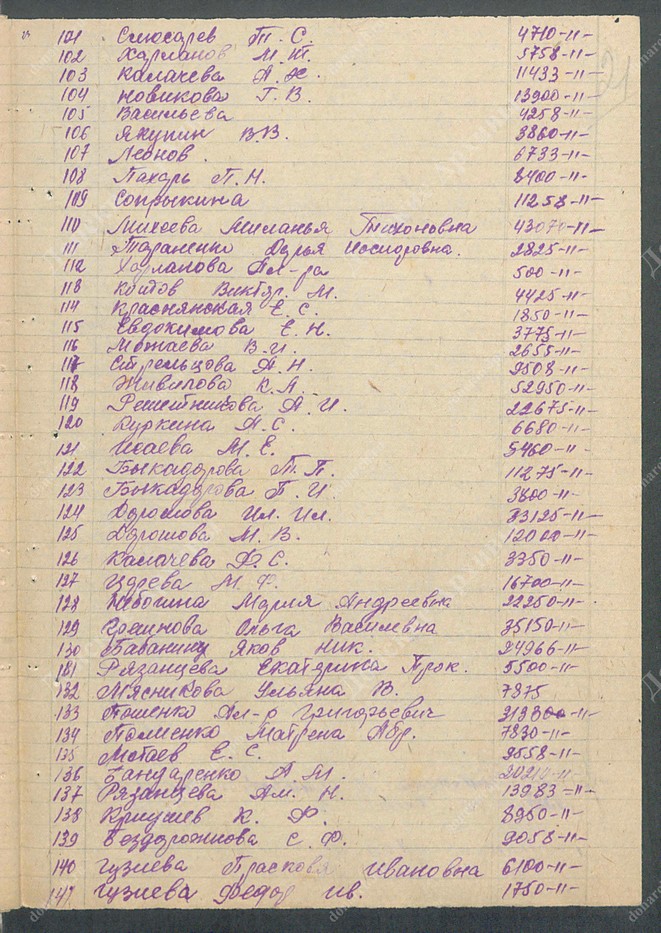 101 Слюсарев Т. С. 4710-11-
102 Харланов М. Т. 5758-11-
103 Калачева А. Ж. 11433-11-
104 Новикова Г. В. 13900-11-
105 Васильева 4258-11-
106 Якупин В.В. 3860-11-
107 Леонов. 6733-11-
108 Пахарь П.Н. 8400-11-
109 Сопрыкина 11258-11-
110 Михеева Миланья Тихоновна 43070-11-
111 Тараненко Дарья 2825-11-
112 Харланова Ал-ра 500-11-
113 Виктор. М. 4425-11-
114 Краснянская Е. С. 1850-11-
115 Евдокимова Е. Н. 3775-11-
116 Можаева В.И. 2655-11-
117 Стрельцова А. Н. 9508-11-
118 Живилова К. А. 52950-11-
119 Решетникова А. И. 22675-11-
120 Куркина А. С. 6680-11-
121 Исаева М. Е. 5460-11-
122 Быкадорова Т. П. 11275-11-
123 Быкадорова П. И. 3800-11-
124 Ил. Ил. 33125-11-
125 М. В. 12000-11-
126 Калачева Ф. С. 3350-11-
127 М. Ф. 16700-11-
128 Мария Андреевна 22250-11-
129 Ольга Василевна 35150-11-
130 Яков Ник. 24966-11-
131 Рязанцева Екатерина Прок. 5500-11-
132 Мясникова Ульяна В. 7875
133 Ал-р Григорьевич
134 Матрена Абр. 7830-11-
135 Е. С. 9558-11-
136 Бандаренко А. М.
137 Рязанцева Ам. Н. 13983=11-
138 К. Ф. 8950-11-
139 Бездорожнова С. Ф. 9058-11-
140 Гузиева Прасковя Ивановна 6100-11-
141 Гузиева Федор Ив. 1750-11-